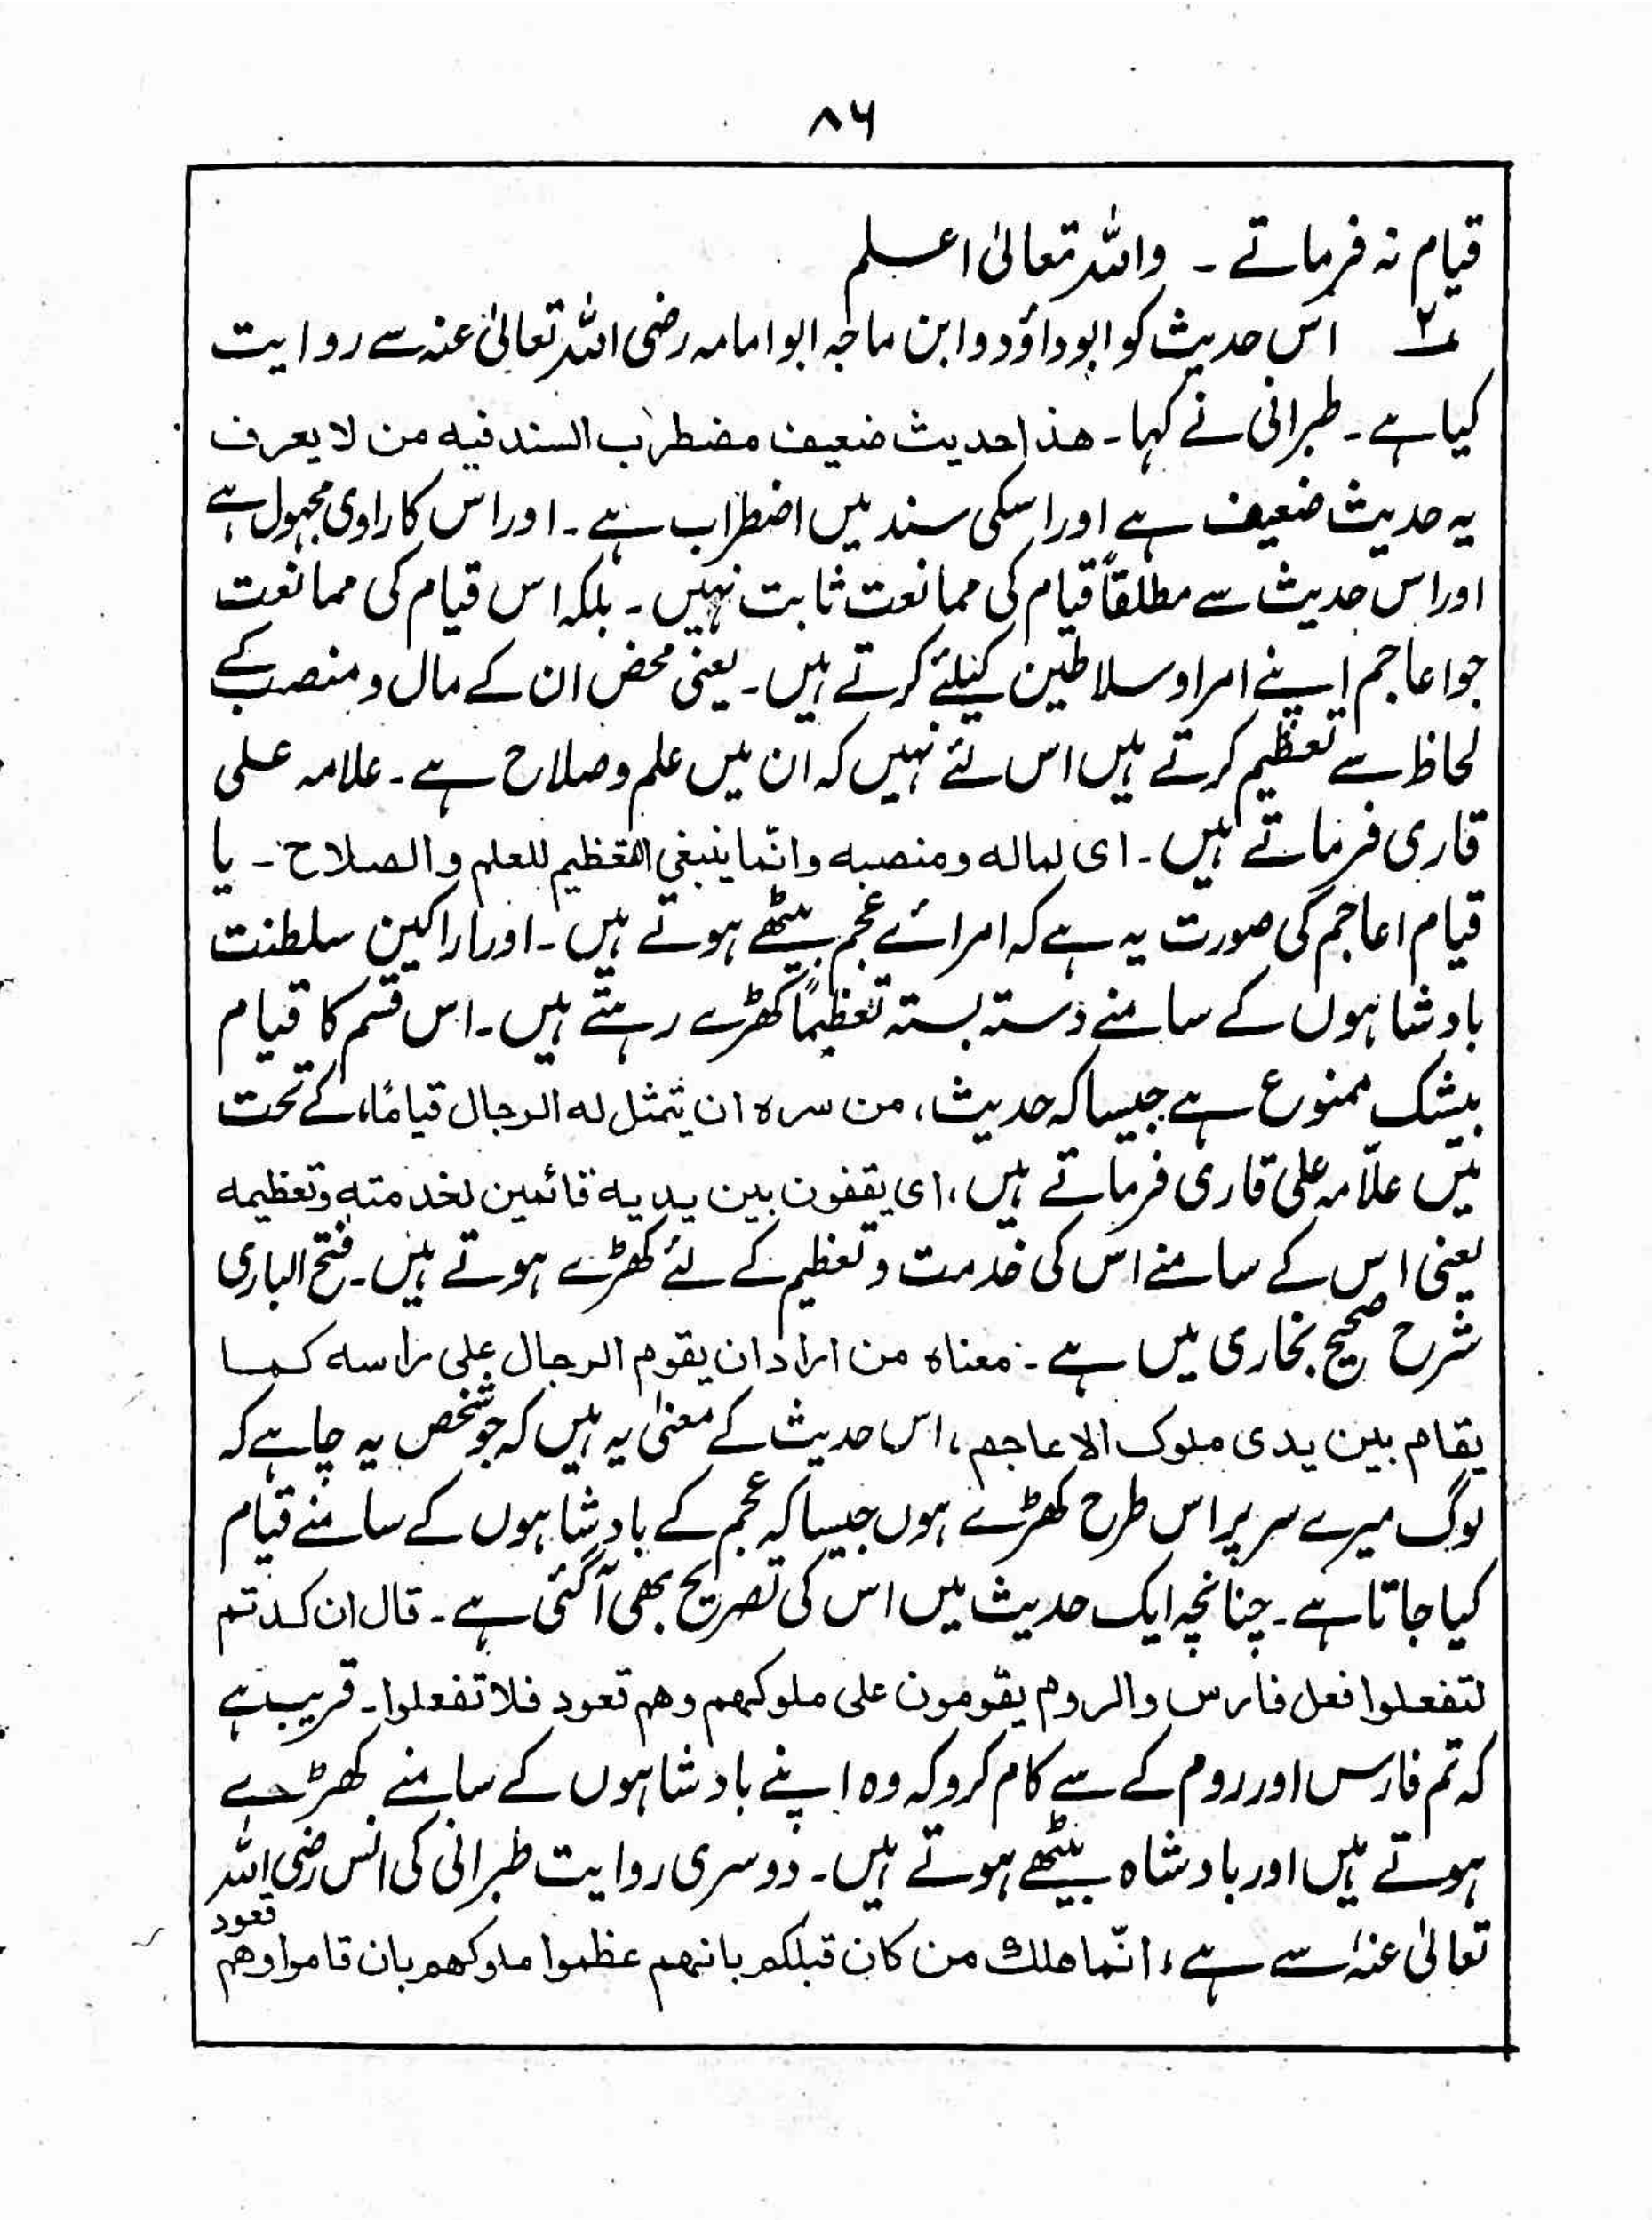 ۸۶
قیام نہ فرماتے ۔ واللہ تعالیٰ اعلم
۲؎ اس حدیث کو ابوداؤد و ابن ماجہ ابو امامہ رضی اللہ تعالیٰ عنہ سے روایت
کیا ہے ۔ طبرانی نے کہا ۔ ھذا حدیث ضعیف مضطرب السند فیہ من لا یعرف
یہ حدیث ضعیف ہے اور اسکی سند میں اضطراب ہے ۔ اور اس کا راوی مجہول ہے
اور اس حدیث سے مطلقاً قیام کی ممانعت ثابت نہیں ۔ بلکہ اس قیام کی ممانعت
جو اعاجم اپنے امرا و سلاطین کیلئے کرتے ہیں ۔ یعنی محض ان کے مال و منصب کے
لحاظ سے تعظیم کرتے ہیں اس لئے نہیں کہ ان میں علم و صلاح ہے ۔ علامہ علی
قاری فرماتے ہیں ۔ ای لمالہ و منصبہ و انّما ینبغی التعظیم للعلم و الصلاح ۔ یا
قیام اعاجم کی صورت یہ ہے کہ امرائے عجم بیٹھے ہوتے ہیں ۔ اور اراکین سلطنت
بادشاہوں کے سامنے دستہ بستہ تعظیماً کھڑے رہتے ہیں ۔ اس قسم کا قیام
بیشک ممنوع ہے جیسا کہ حدیث ، من سرہ ان یتمثل لہ الرجال قیامًا ، کے تحت
میں علّامہ علی قاری فرماتے ہیں ، ای یقفون بین یدیہ قائمین لخدمتہ و تعظیمہ
یعنی اس کے سامنے اس کی خدمت و تعظیم کے لئے کھڑے ہوتے ہیں ۔ فتح الباری
شرح صحیح بخاری میں ہے ۔ معناہ من اراد ان یقوم الرجال علی راسہ کما
یقام بین یدی ملوک الاعاجم ، اس حدیث کے معنیٰ یہ ہیں کہ جو شخص یہ چاہے کہ
لوگ میرے سر پر اس طرح کھڑے ہوں جیسا کہ عجم کے بادشاہوں کے سامنے قیام
کیا جاتا ہے ۔ چنانچہ ایک حدیث میں اس کی تصریح بھی آگئی ہے ۔ قال ان کدتم
لتفعلوا فعل فارس والروم یقومون علی ملوکھم وھم قعود فلا تفعلوا ۔ قریب ہے
کہ تم فارس اور روم کے سے کام کرو کہ وہ اپنے بادشاہوں کے سامنے کھڑے
ہوتے ہیں اور بادشاہ بیٹھے ہوتے ہیں ۔ دوسری روایت طبرانی کی انس رضی اللہ
تعالیٰ عنہ سے ہے ، انّما ھلك من کان قبلکم بانھم عظموا ملوکھم بان قاموا وھم قعود